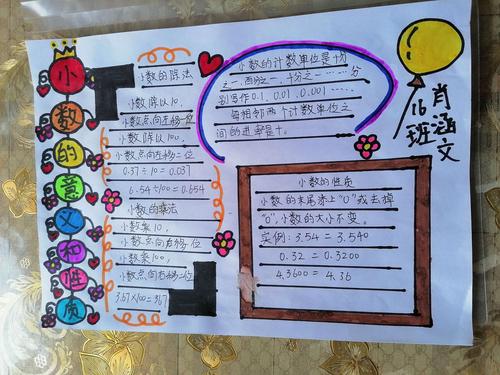 小数的意义和性质
小数的除法
小数除以10，
小数点向左移一位
小数除以100，
小数点向左移二位
0.37÷10=0.037
6.54÷100=0.654
小数的乘法
小数乘10，
小数点向右移一位
小数乘100，
小数点向右移二位
3.67×100=367
小数的计数单位是十分
之一，百分之一，千分之一……分
别写作0.1，0.01，0.001……
每相邻两个计数单位之
间的进率是十。
小数的性质
小数的末尾添上"0"或去掉
"0"，小数的大小不变。
实例：3.54=3.540
0.32=0.3200
4.3600=4.36
16班
肖涵文